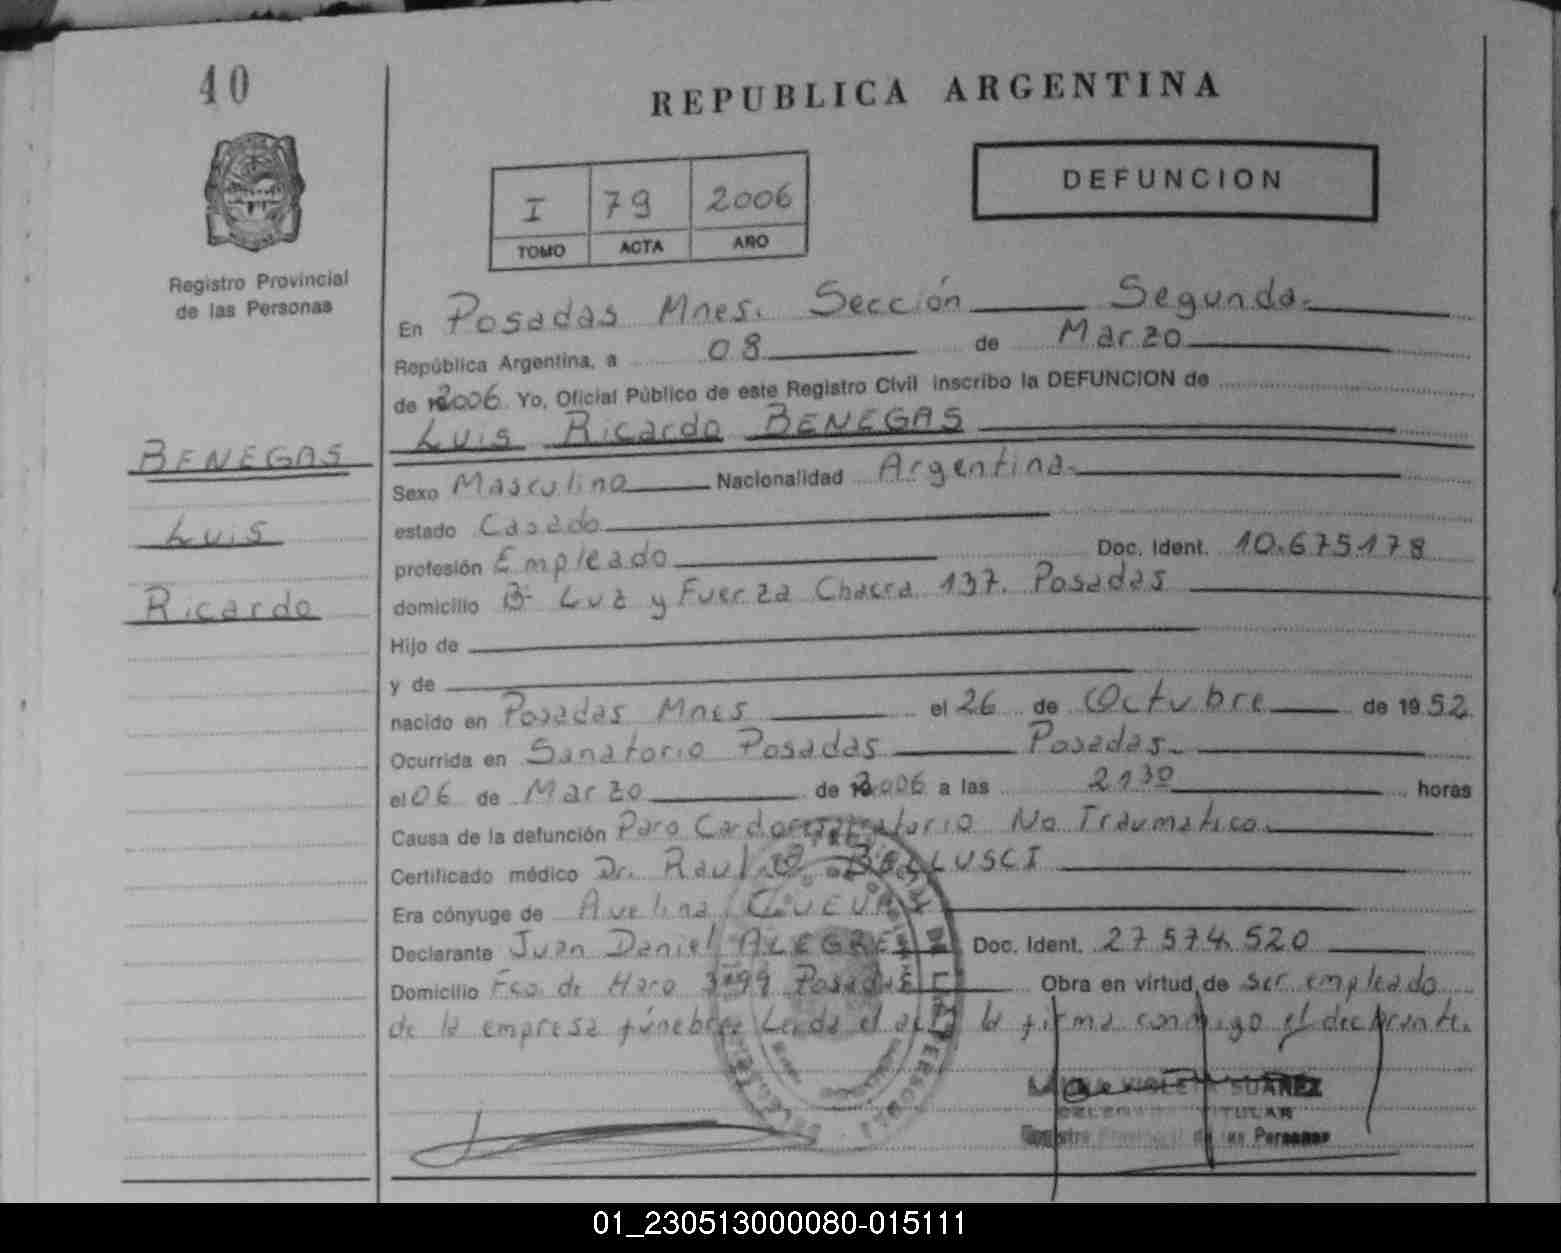 40
REPUBLICA ARGENTINA
DEFUNCION
I 79 2006
TOMO ACTA AÑO
Registro Provincial
de las Personas
En Posadas Mnes. Sección Segunda.
República Argentina, a 08 de Marzo
de 2006. Yo, Oficial Público de este Registro Civil inscribo la DEFUNCION de
Luis Ricardo BENEGAS
BENEGAS
Luis
Ricardo
Sexo Masculino Nacionalidad Argentina.
estado Casado
profesión Empleado Doc. Ident. 10.675.178
domicilio B- Luz y Fuerza Chacra 137. Posadas
Hijo de
y de
nacido en Posadas Mnes el 26 de Octubre de 1952
Ocurrida en Sanatorio Posadas Posadas.
el 06 de Marzo de 2006 a las 21³⁰ horas
Causa de la defunción Paro Cardorespiratorio No Traumatico.
Certificado médico Dr. Raul BELLUSCI
Era cónyuge de Avelina
Declarante Juan Daniel ALEGRE Doc. Ident. 27.574.520
Domicilio Fco. de Haro Posadas Obra en virtud de ser empleado
de la empresa fúnebre Leida el acta la firma conmigo el declarante.
SUAREZ
TITULAR
Registro Provincial de las Personas
01_230513000080-015111